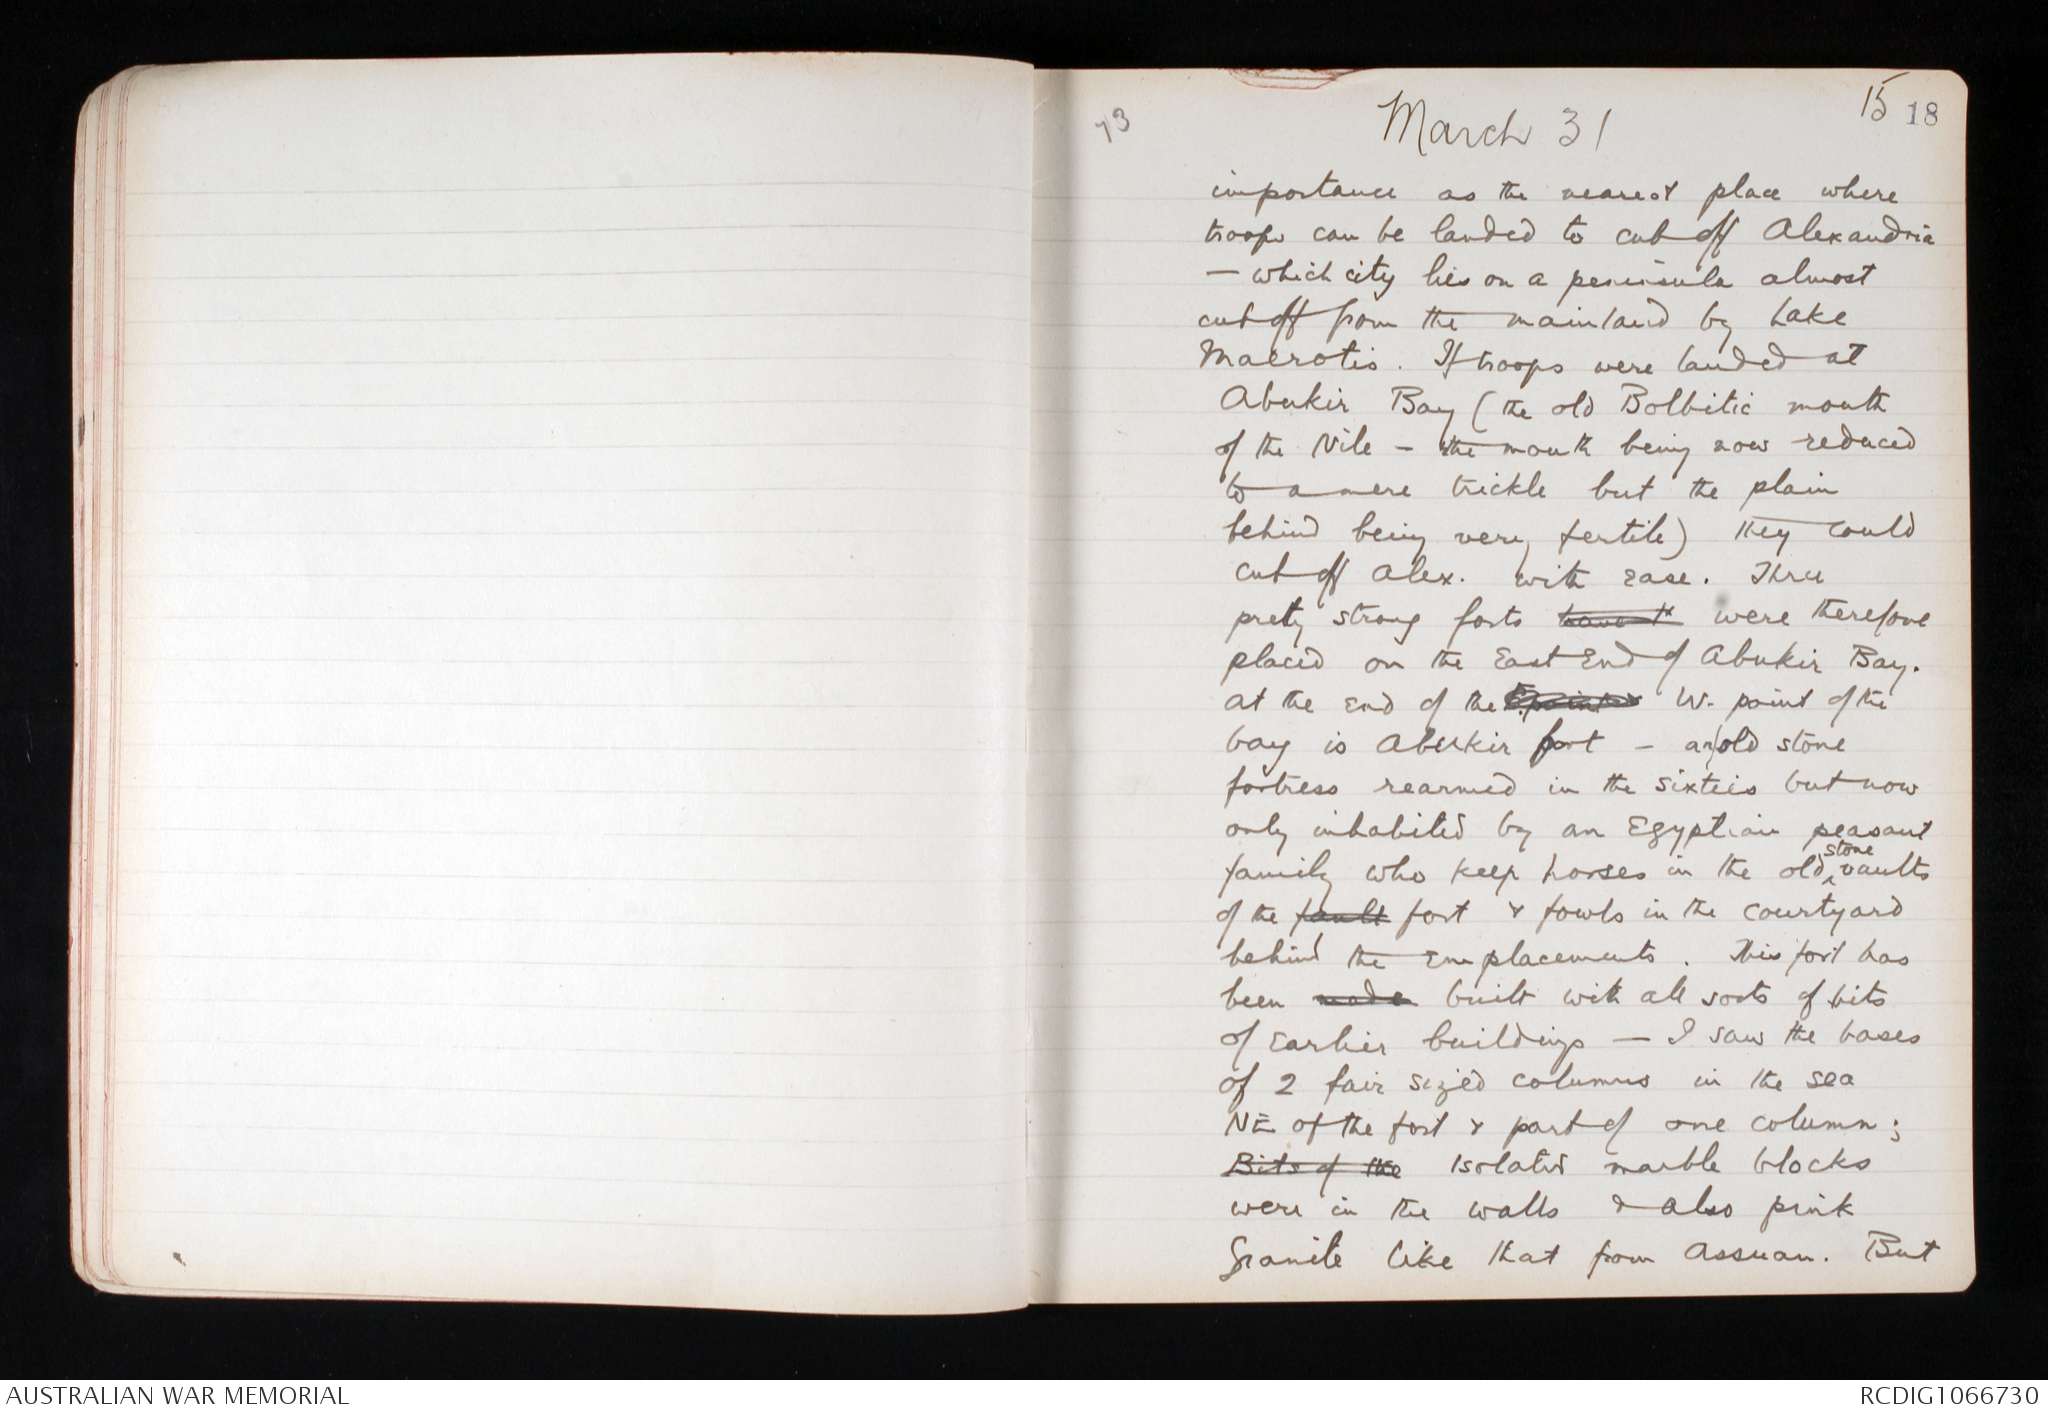 73
March 31
15 18
importance as the nearest place where
troops can be landed to cut off Alexandria
— which city lies on a peninsula almost
cut off from the mainland by Lake
Maerotis. If troops were landed at
Abukir Bay (the old Bolbitic mouth
of the Nile – the mouth being now reduced
to a mere trickle but the plain
behind being very fertile) they could
cut off Alex. with ease. Three
prety strong forts were therefore
placed on the East End of Abukir Bay.
At the end of the W. point of the
bay is Abukir fort – an old stone
fortress rearmed in the sixties but now
only inhabited by an Egyptian peasant
family who keep horses in the old stone vaults
of the fault fort & fowls in the courtyard
behind the Emplacements. This fort has
been made built with all sorts of bits
of Earlier buildings — I saw the bases
of 2 fair sized columns in the sea
NE of the fort & part of one column;
Bits of the Isolated marble blocks
were in the walls & also pink
Granite like that from Assuan. But
AUSTRALIAN WAR MEMORIAL
RCDIG1066730